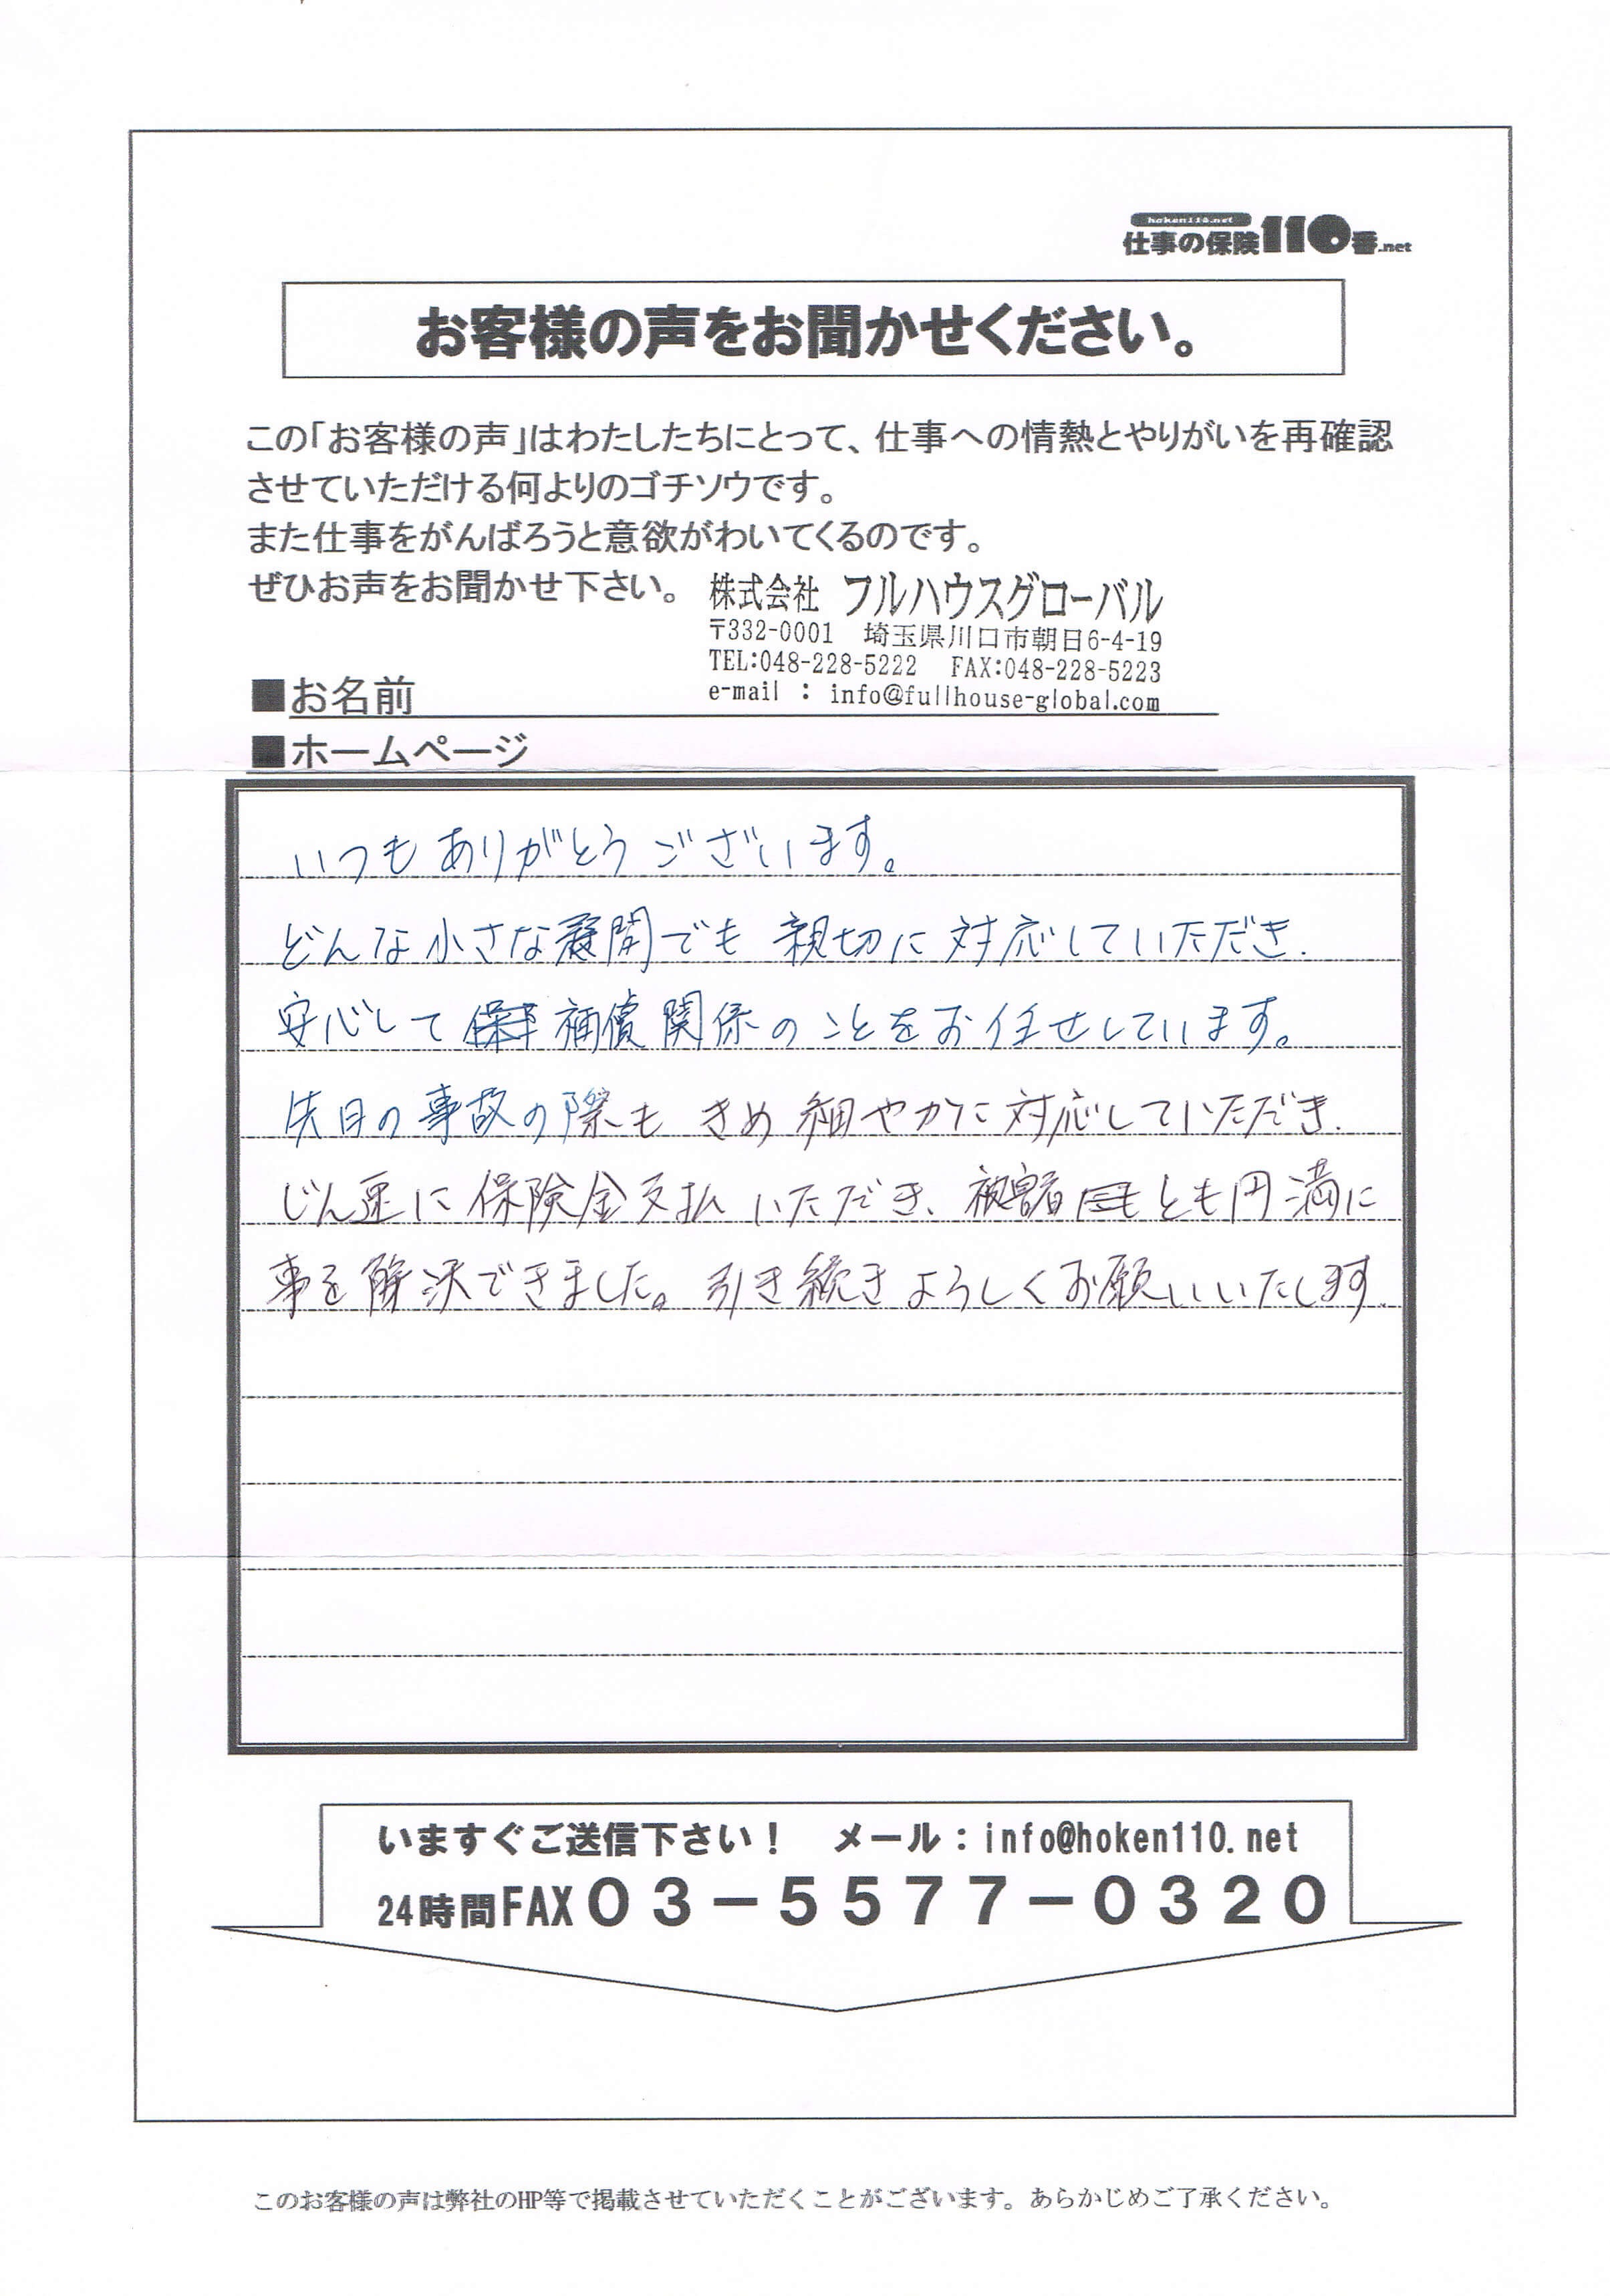 hoken110.net
仕事の保険110番.net
お客様の声をお聞かせください。
この「お客様の声」はわたしたちにとって、仕事への情熱とやりがいを再確認
させていただける何よりのゴチソウです。
また仕事をがんばろうと意欲がわいてくるのです。
ぜひお声をお聞かせ下さい。
株式会社 フルハウスグローバル
〒332-0001 埼玉県川口市朝日6-4-19
TEL:048-228-5222 FAX:048-228-5223
e-mail : info@fullhouse-global.com
■お名前
■ホームページ
いつもありがとうございます。
どんな小さな質問でも親切に対応していただき、
安心して補償関係のことをお任せしています。
先日の事故の際もきめ細やかに対応していただき、
じん速に保険金支払いただき、被害者とも円満に
事を解決できました。引き続きよろしくお願いいたします。
いますぐご送信下さい! メール:info@hoken110.net
24時間FAX03-5577-0320
このお客様の声は弊社のHP等で掲載させていただくことがございます。あらかじめご了承ください。